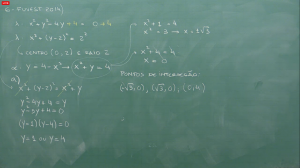 6 - FUVEST 2014)
λ: x² + y² - 4y + 4 = 0 + 4
λ: x² + (y-2)² = 2²
→ CENTRO (0,2) E RAIO 2
α: y = 4 - x² → x² + y = 4
a)
x² + (y-2)² = x² + y
y² - 4y + 4 = y
y² - 5y + 4 = 0
(y-1)(y-4) = 0
y = 1 ou y = 4
• x² + 1 = 4
x² = 3 → x = ±√3
• x² + 4 = 4
x = 0
PONTOS DE INTERSEÇÃO:
(-√3, 1), (√3, 1), (0,4)